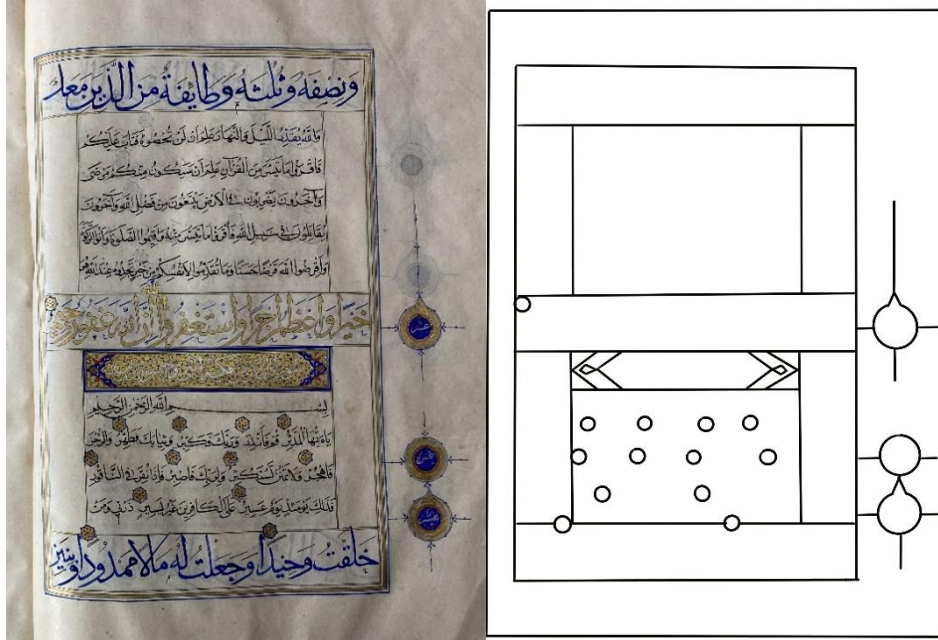 وَنِصْفَهُ وَثُلُثَهُ وَطَايِفَةٌ مِنَ الَّذِينَ مَعَكَ
وَاللّٰهُ يُقَدِّرُ اللَّيْلَ وَالنَّهَارَ عَلِمَ اَنْ لَنْ تُحْصُوهُ فَتَابَ عَلَيْكُمْ
فَاقْرَؤُا مَا تَيَسَّرَ مِنَ الْقُرْآنِ عَلِمَ اَنْ سَيَكُونُ مِنْكُمْ مَرْضَى
وَآخَرُونَ يَضْرِبُونَ فِي الْاَرْضِ يَبْتَغُونَ مِنْ فَضْلِ اللّٰهِ وَآخَرُونَ
يُقَاتِلُونَ فِي سَبِيلِ اللّٰهِ فَاقْرَؤُا مَا تَيَسَّرَ مِنْهُ وَاَقِيمُوا الصَّلَوةَ وَآتُوا الزَّكَوةَ
وَاَقْرِضُوا اللّٰهَ قَرْضًا حَسَنًا وَمَا تُقَدِّمُوا لِاَنْفُسِكُمْ مِنْ خَيْرٍ تَجِدُوهُ عِنْدَ اللّٰهِ هُوَ
خَيْرًا وَاَعْظَمَ اَجْرًا وَاسْتَغْفِرُوا اللّٰهَ اِنَّ اللّٰهَ غَفُورٌ رَحِيمٌ
عشر
بِسْمِ اللّٰهِ الرَّحْمٰنِ الرَّحِيمِ
يَاءَيُّهَا الْمُدَّثِّرُ قُمْ فَاَنْذِرْ وَرَبَّكَ فَكَبِّرْ وَثِيَابَكَ فَطَهِّرْ وَالرُّجْزَ
فَاهْجُرْ وَلَا تَمْنُنْ تَسْتَكْثِرُ وَلِرَبِّكَ فَاصْبِرْ فَاِذَا نُقِرَ فِي النَّاقُورِ
خمس
فَذَلِكَ يَوْمَئِذٍ يَوْمٌ عَسِيرٌ عَلَى الْكَافِرِينَ غَيْرُ يَسِيرٍ ذَرْنِي وَمَنْ
عشر
خَلَقْتُ وَحِيدًا وَجَعَلْتُ لَهُ مَالًا مَمْدُودًا وَبَنِينَ